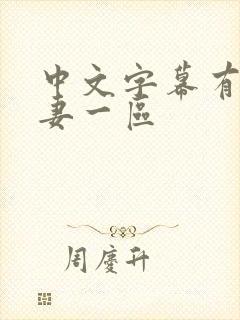 中文字幕有
妻一區
周慶升